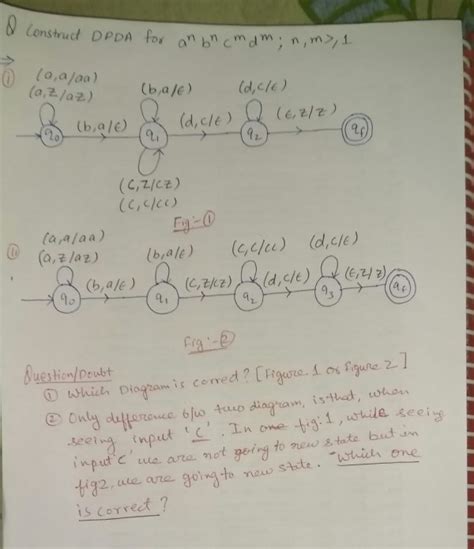 Q Construct DPDA for aⁿbⁿcᵐdᵐ; n,m≥1
⇒
① (a,a/aa)
(a,Z/aZ)
(b,a/ε)
(d,c/ε)
q0 (b,a/ε) q1 (d,c/ε) q2 (ε,Z/Z) qf
(c,Z/cZ)
(c,c/cc)
Fig:-①
⑪ (a,a/aa)
(a,Z/aZ)
(b,a/ε)
(c,c/cc)
(d,c/ε)
q0 (b,a/ε) q1 (c,Z/cZ) q2 (d,c/ε) q3 (ε,Z/Z) qf
Fig:-②
Question/Doubt
① Which Diagram is correct? [Figure 1 or figure 2]
② Only difference b/w two diagram, is that, when
seeing input 'c'. In fig:1, while seeing
input 'c' we are not going to new state but in
fig2, we are going to new state. "Which one
is correct?